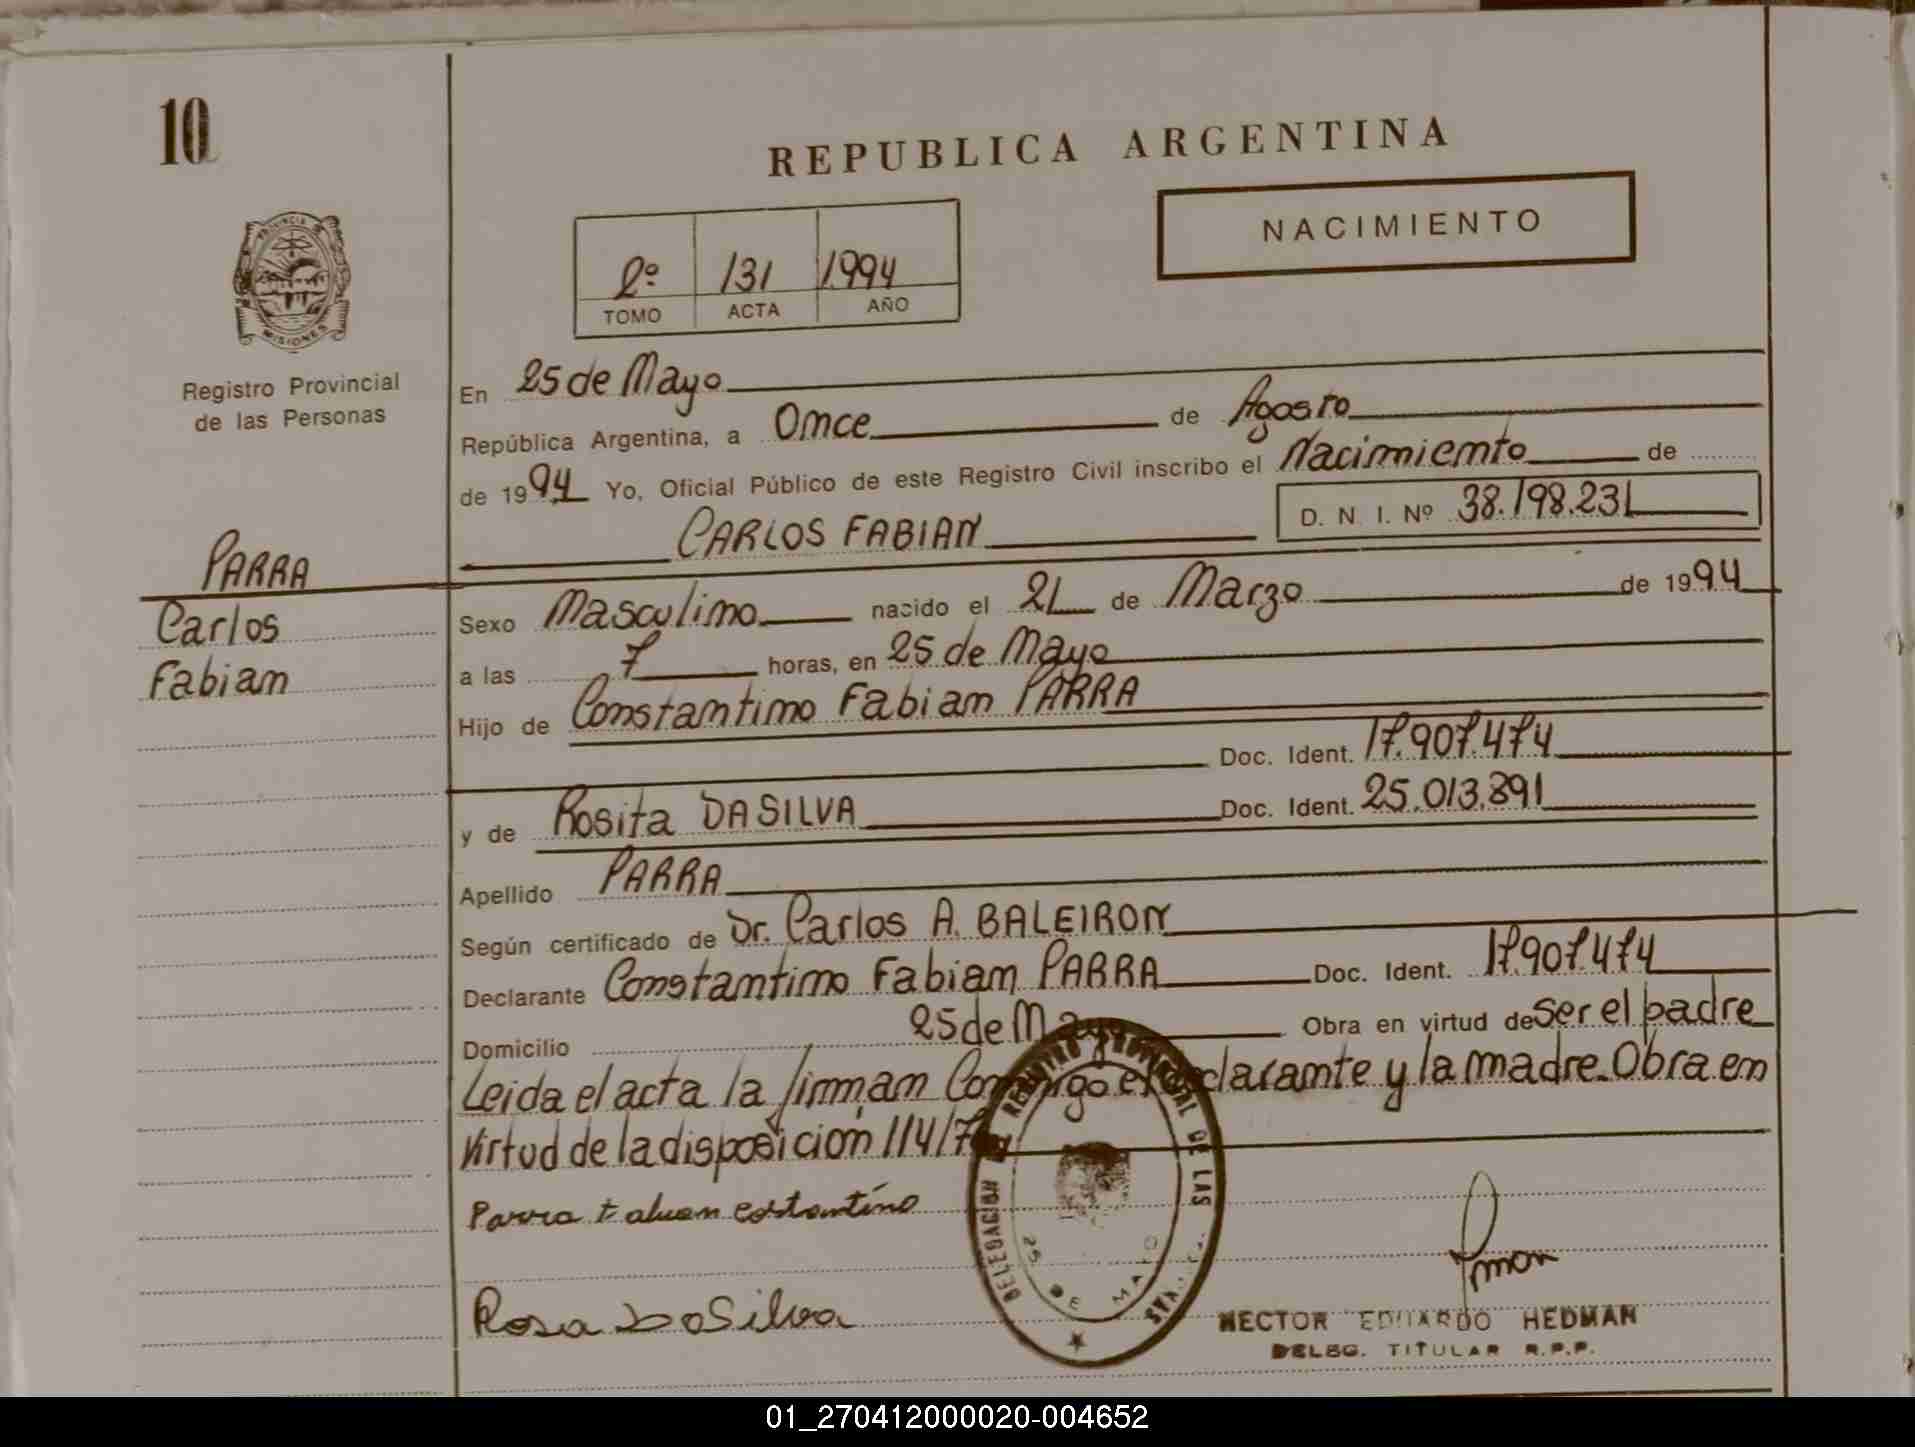 10
REPUBLICA ARGENTINA
NACIMIENTO
2º 131 1.994
TOMO ACTA AÑO
PROVINCIA
MISIONES
Registro Provincial
de las Personas
PARRA
Carlos
Fabian
En 25 de Mayo
República Argentina, a Once de Agosto
de 1994 Yo, Oficial Público de este Registro Civil inscribo el Nacimiento de
CARLOS FABIAN D. N I. Nº 38.198.231
Sexo Masculino nacido el 21 de Marzo de 1994
a las 7 horas, en 25 de Mayo
Hijo de Constantino Fabian PARRA
Doc. Ident. 17.907.474
y de Rosita DA SILVA Doc. Ident. 25.013.891
Apellido PARRA
Según certificado de Dr. Carlos A. BALEIRON
Declarante Constantino Fabian PARRA Doc. Ident. 17.907.474
Domicilio 25 de Mayo Obra en virtud de ser el padre
Leida el acta la firman Conmigo el declarante y la madre. Obra en
Virtud de la disposición 114/
Parra costantino
Rosa DaSilva
DELEGACION REGISTRO PROVINCIAL DE LAS
25 DE MAYO
HECTOR EDUARDO HEDMAN
DELEG. TITULAR R.P.P.
01_270412000020-004652